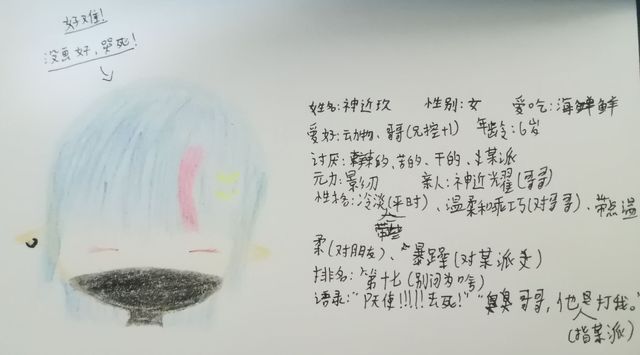 好难!
没画好,哭死!
姓名:神近玖 性别:女 爱吃:海鲜
爱好:动物、哥哥(兄控+1) 年龄:6岁
讨厌:辣的、苦的、干的、某派
元力:影刃 亲人:神近耀(哥哥)
性格:冷淡(平时)、温柔和乖巧(对哥哥)、带点温
柔(对朋友)、暴躁(对某派)
排名:第十七(别问为啥)
语录:"天使!!!!!去死!" "臭臭哥哥,他是打我。"
(指某派)